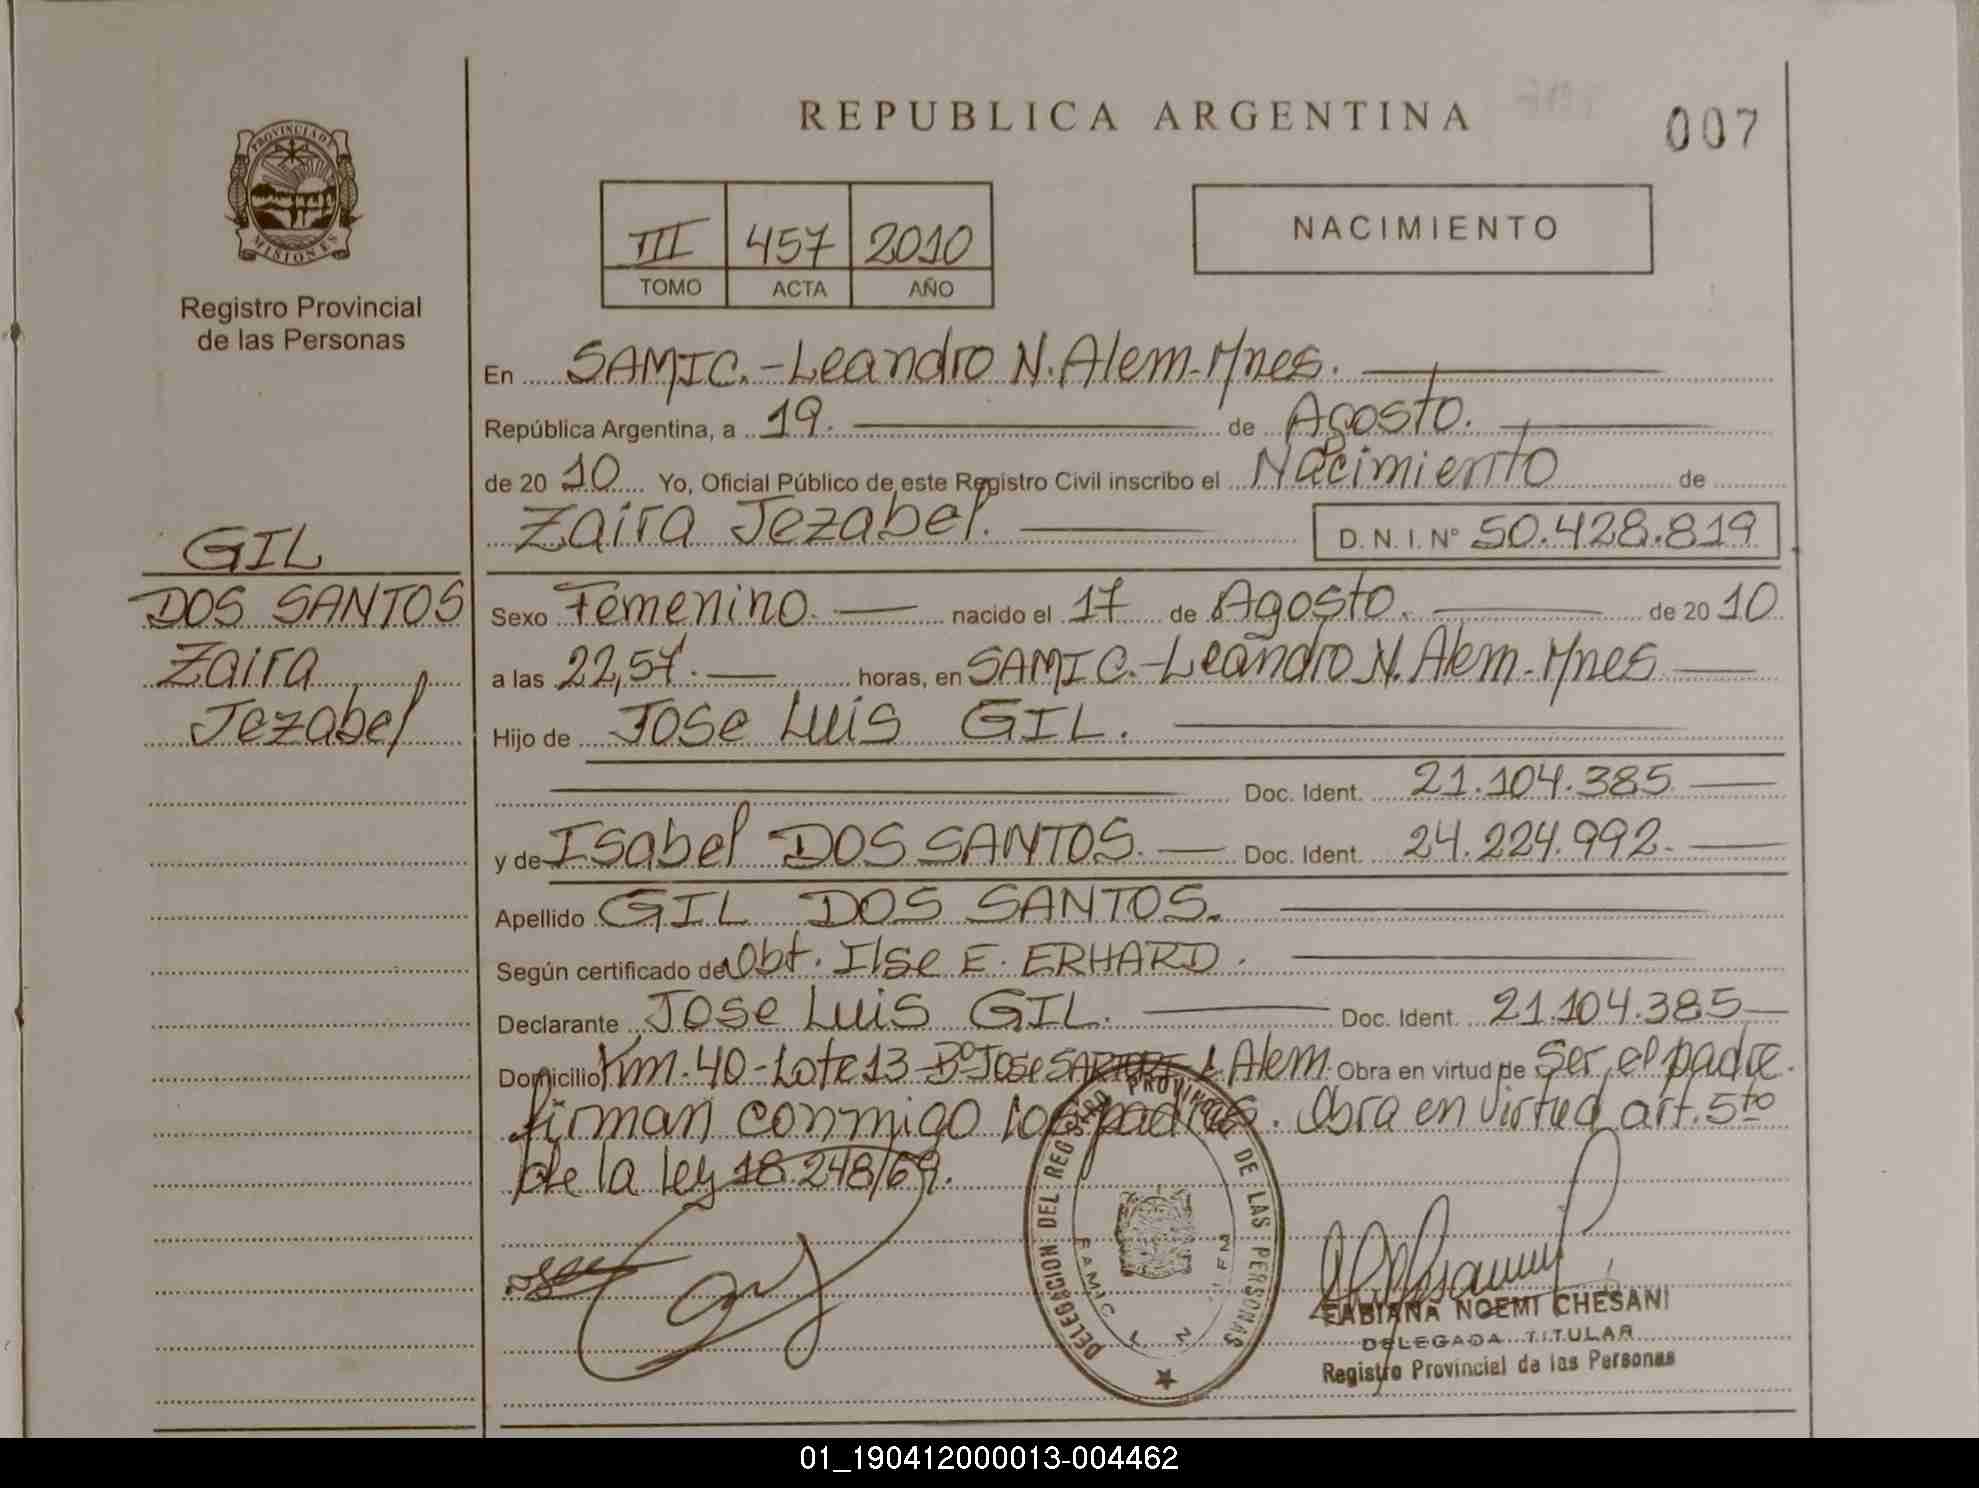 REPUBLICA ARGENTINA
007
PROVINCIA DE
MISIONES
Registro Provincial
de las Personas
III 457 2010
TOMO ACTA AÑO
NACIMIENTO
En SAMIC.-Leandro N. Alem-Mnes.
República Argentina, a 19. de Agosto.
de 20 10 Yo, Oficial Público de este Registro Civil inscribo el Nacimiento de
Zaira Jezabel. D. N. I. Nº 50.428.819
GIL
DOS SANTOS
Zaira
Jezabel
Sexo Femenino. nacido el 17 de Agosto. de 20 10
a las 22,57. horas, en SAMIC.-Leandro N. Alem-Mnes
Hijo de Jose Luis GIL.
Doc. Ident. 21.104.385
y de Isabel DOS SANTOS. Doc. Ident. 24.224.992.
Apellido GIL DOS SANTOS.
Según certificado de Obt. Ilse E. ERHARD.
Declarante Jose Luis GIL. Doc. Ident. 21.104.385
Domicilio Km. 40-Lote 13-Bº Jose L. Alem. Obra en virtud de Ser el padre.
firman conmigo los padres. Obra en virtud art. 5to
de la ley 18.248/69.
DELEGACION DEL REGISTRO PROVINCIAL DE LAS PERSONAS
FABIANA NOEMI CHESANI
DELEGADA TITULAR
Registro Provincial de las Personas
01_190412000013-004462